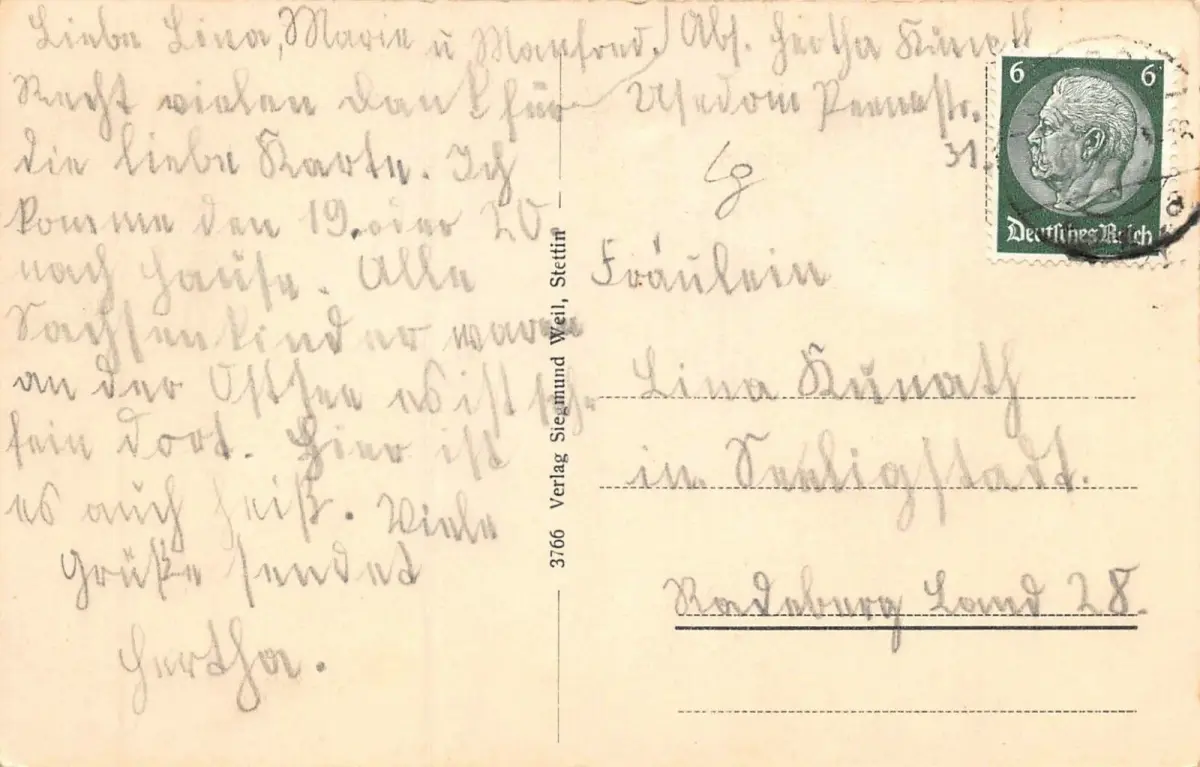 Liebe Lina, Marie u Manfred.
Recht vielen Dank für
die liebe Karte. Ich
komme den 19. oder 20.
nach Hause. Alle
Sachsenkinder waren
an der Ostsee es ist sch-
fein dort. Hier ist
es auch heiß. Viele
Grüße sendet
Hertha.
3766 Verlag Siegmund Weil, Stettin
Abs. Hertha
Usedom Peenestr.
31.
6 6
Deutsches Reich
Fräulein
Lina Kunath
in Seeligstadt.
Radeberg Land 28.